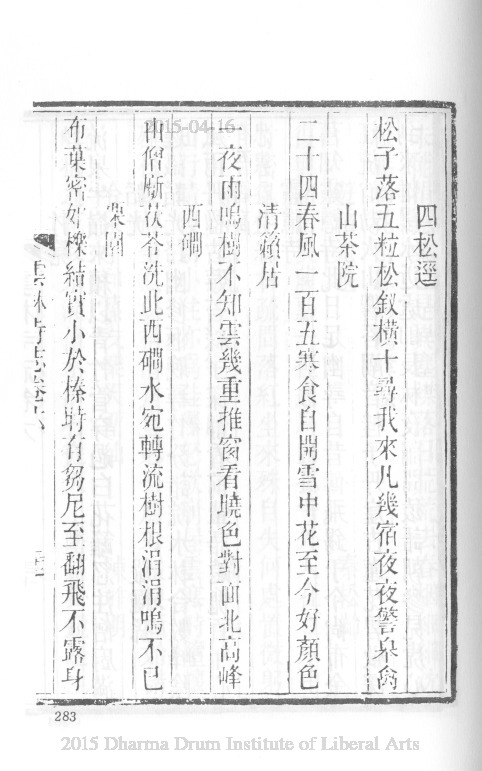 四松逕
松子落五粒松釵橫十尋我來凡幾宿夜夜警皋禽
山茶院
二十四春風一百五寒食自開雪中花至今好顏色
清籟居
一夜雨鳴樹不知雲幾重推窗看曉色對面北高峰
西磵
山僧斸茯苓洗此西磵水宛轉流樹根涓涓鳴不已
栗園
布葉密如櫟結實小於榛時有芻尼至翻飛不露身
雲林寺志卷六
283
2015-04-16
2015 Dharma Drum Institute of Liberal Arts